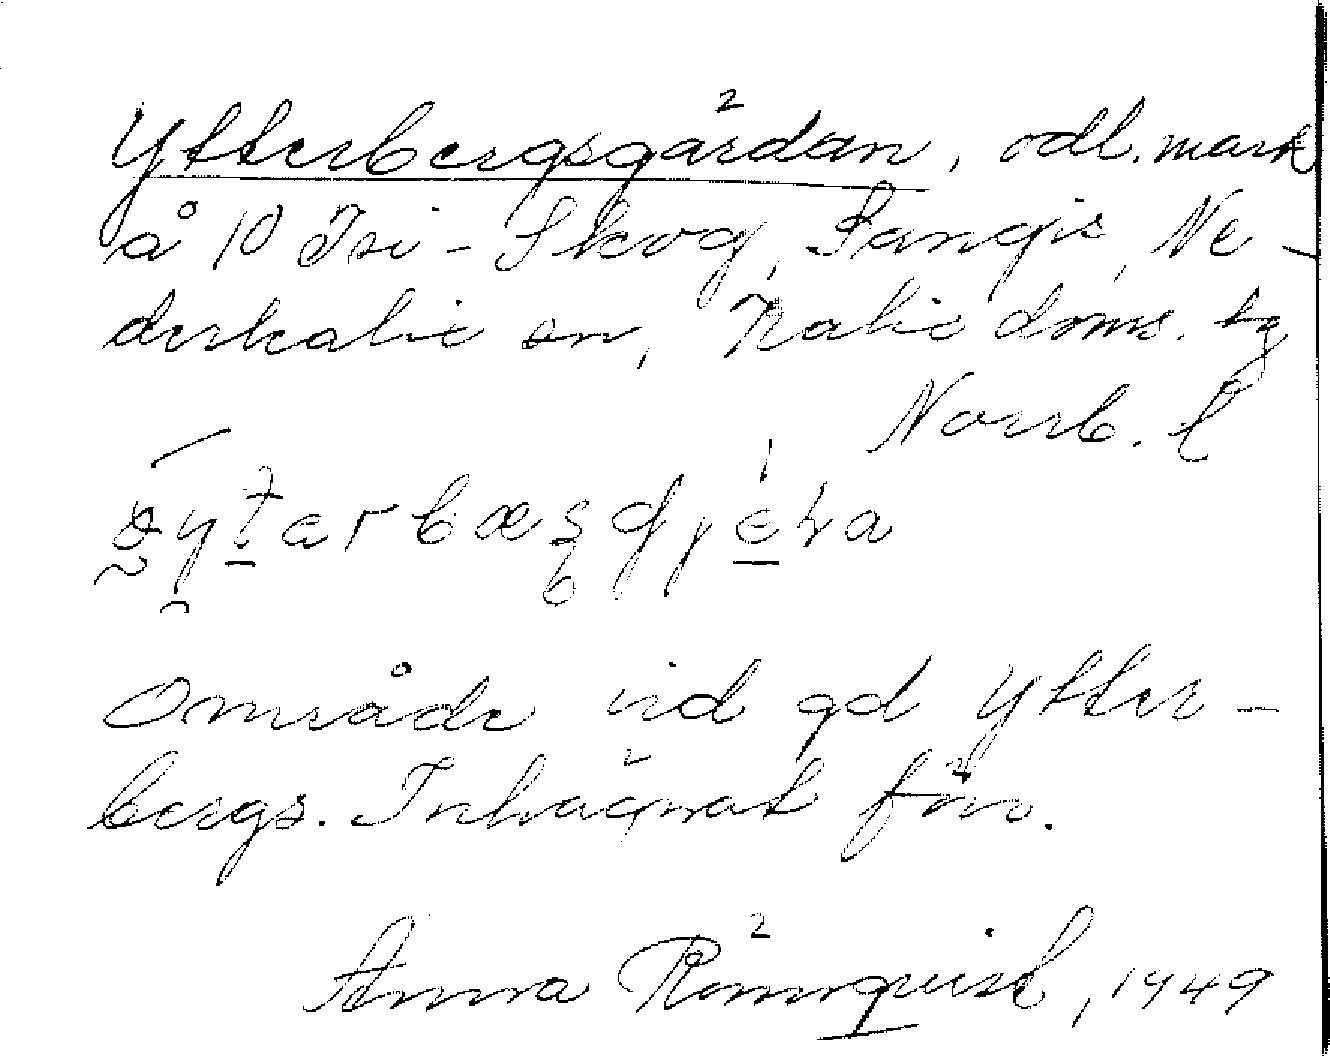 Yttterbergsgärdan, odl. mark
å 10 Isi-Skog, Sangis, Ne-
derkalix sn, Kalix doms. tg
Norrb. l
Område vid gd Ytter-
bergs. Inhägnat förr.
Anna Rönnqvist, 1949